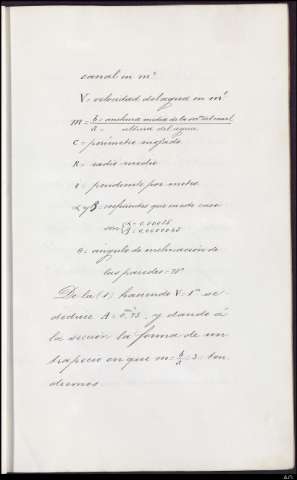 canal en m²
V = velocidad del agua en m⁵
m = b = anchura media de la sección del canal
a = altura del agua
C = perímetro mojado
R = radio medio
i = pendiente por metro
α y β = coeficientes que en este caso
son { α = 0.00015
β = 0.0000045
θ = ángulo de inclinación de
las paredes = 75°
De la (1) haciendo V = 1ᵐ se
deduce A = 0,75 y dando á
la sección la forma de un
trapecio en que m = b/a = 3 ten
dremos